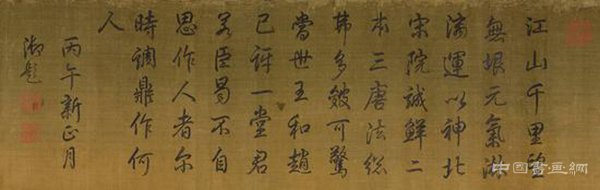 江山千里望
無垠元氣淋
漓運以神北
宋院誠鮮二
本三唐法總
弗多皴可驚
當世王和趙
已訝一堂君
若臣曷不自
思作人者尔
時調鼎作何
人
丙午新正月
御題
中国書画網